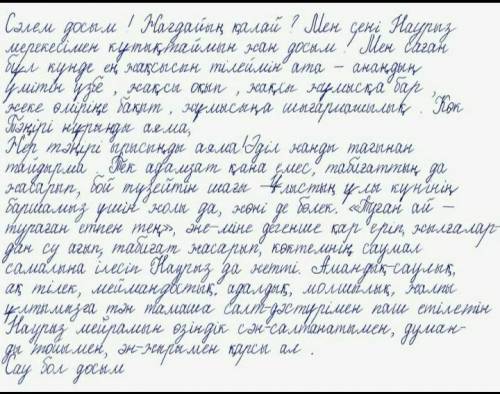 Сәлем досым! Жағдайың қалай? Мен сені Наурыз
мерекесімен құтықтаймын жан досым! Мен саған
бұл күнде ең жақсысын тілеймін ата - анаңдың
үмітін үзбе, жақсы оқып, жақсы жұмысқа бар,
жеке өміріңе бақыт, жұмысыңа шығармашылық. Көк
Тәңірі нұрыңды аяма,
Жер тәңірі ырысыңды аяма! Әділ жанды тағынан
тайдырма. Тек адамзат қана емес, табиғаттың да
жасарып, бой түзейтін шағы - Ұлыстың ұлы күнінің
баршамыз үшін жолы да, жөні де бөлек. «Туған ай -
тураған етпен тең», әне-міне дегенше қар еріп, жылғалар-
дан су ағып, табиғат жасарып, көктемнің саумал
самалына ілесіп Наурыз да жетті. Амандық-саулық,
ақ тілек, меймандостық, адалдық, молшылық, жалпы
ұлтымызға тән тамаша салт-дәстүрімен паш етілетін
Наурыз мейрамын өзіндік сән-салтанатымен, думан-
ды тойымен, ән-жырымен қарсы ал.
Сау бол досым